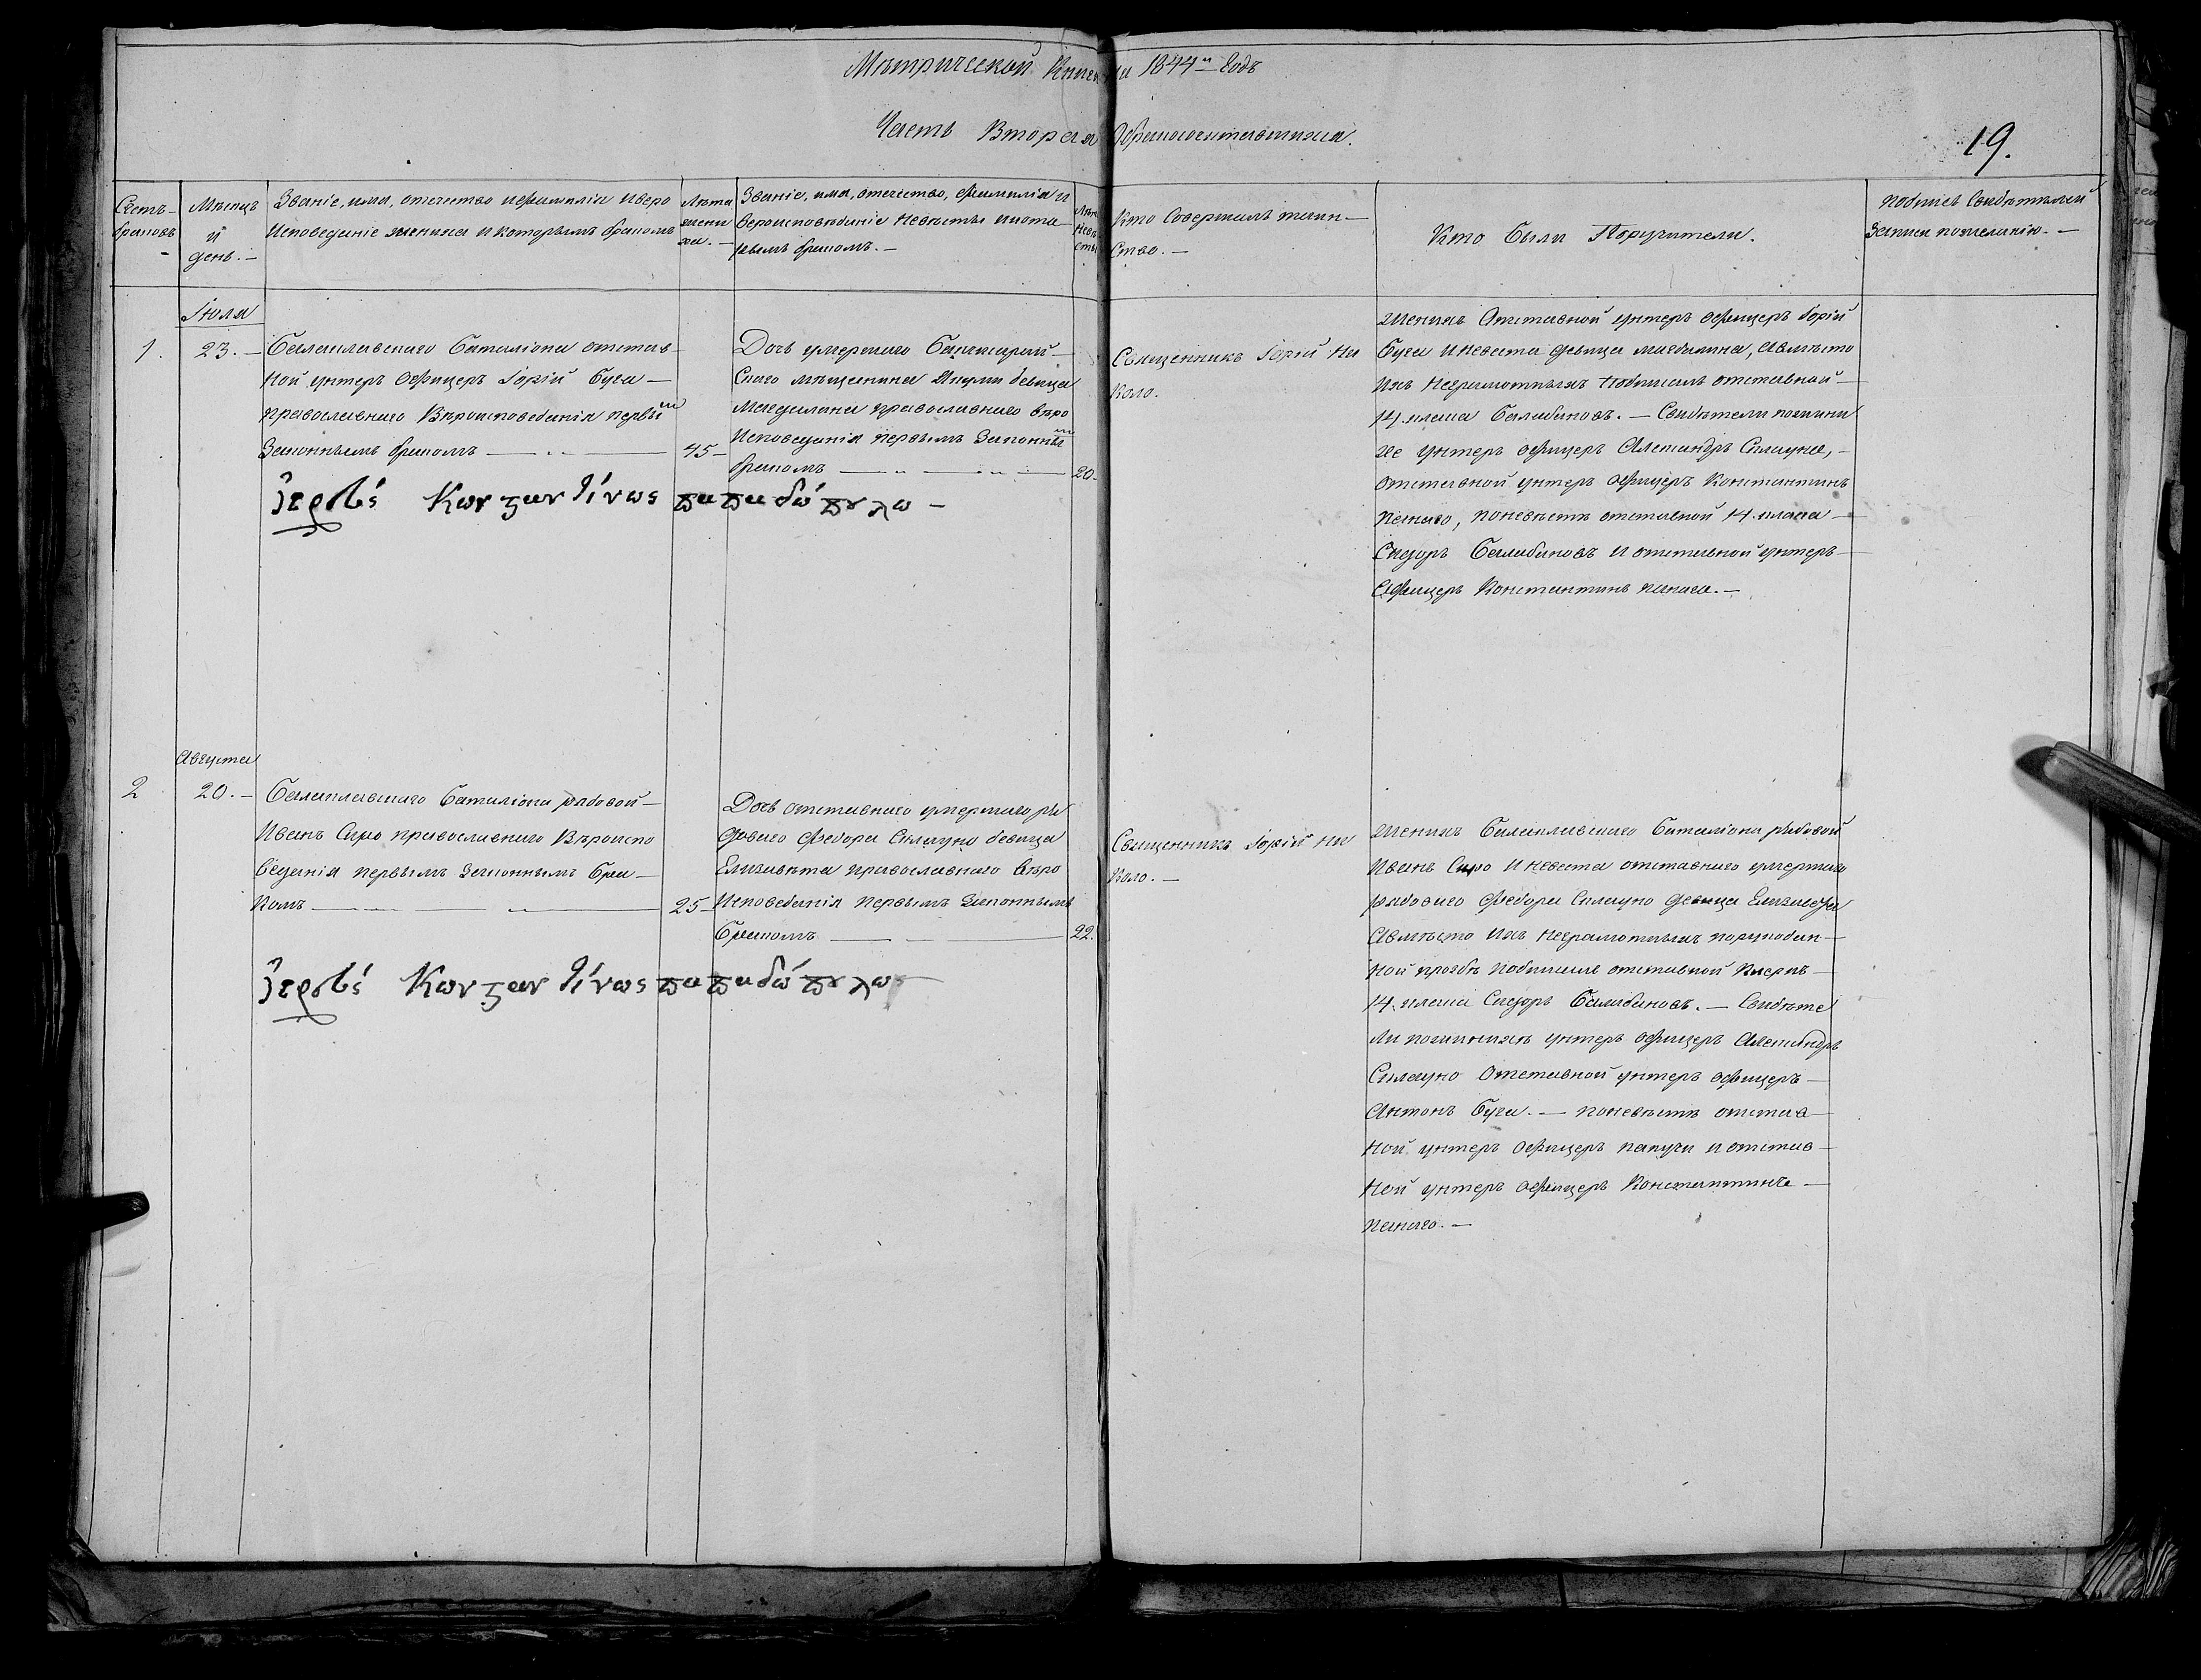 Метрической Книги на 1844й Годъ
Часть Вторая О бракосочетавшихся.
19.
Счетъ браковъ
Мѣсяцъ и день.
Званіе, имя, отечество и фамилія и веро
исповеданіе жениха и которымъ бракомъ
Лѣта жени ха.
Званіе, имя, отечество, фамилія и
вероисповѣданіе невѣсты и кото
рымъ бракомъ.
Лѣта Невѣ сты
Кто Совершилъ таин
ство.
Кто Были Поручители.
подпись Свидѣтелей
записи по желанію.
Іюля
1. 23.
Балаклавскаго Баталіона отстав
ной унтеръ офицеръ Горій Буга
православнаго Вѣроисповеданія первымъ
Законнымъ бракомъ 45
Дочь умершаго
Скаго мещанина девица
Магдалина православнаго вѣро
исповеданія первымъ Законнымъ
бракомъ 20.
Ἱερεὺς Κωνσταντίνος παπαδόπουλο
Священникъ Горій Ни
коло.
Женихъ Отставной унтеръ офицеръ Горій
Буга и невеста девица магдалина, а вмѣсто
ихъ неграмотныхъ подписалъ отставной
14. класа Балабановъ. Свидѣтели по жени
хе унтеръ офицеръ Александръ Склауно,
отставной унтеръ офицеръ Константинъ
панаго, по невѣстѣ отставной 14. класа
Сидоръ Балабановъ и отставной унтеръ
Офицеръ Константинъ панаго.
Августа
2 20.
Балаклавскаго Баталіона рядовой
Иванъ Сиро православнаго Вѣроиспо
веданія первымъ законнымъ бра
комъ 25
Дочь отставнаго умершаго ря
доваго Федора Склауно девица
Елизавѣта православнаго вѣро
исповеданія первымъ Законнымъ
Бракомъ 22.
Ἱερεὺς Κωνσταντίνος παπαδόπουλο
Священникъ Горій Ни
коло.
Женихъ Балаклавскаго Баталіона рядовой
Иванъ Сиро и невеста отставнаго умершаго
рядоваго Федора Склауно девица Елизавета
А вмѣсто ихъ неграмотныхъ по рукодан
ной прозбѣ подписалъ отставной
14. класа Сидоръ Балабановъ. Свидѣте
ли по женихѣ унтеръ офицеръ Александръ
Склауно Отставной унтеръ офицеръ
Антонъ Буга. по невѣстѣ отстав
ной унтеръ офицеръ и отстав
ной унтеръ офицеръ Константинъ
панаго.